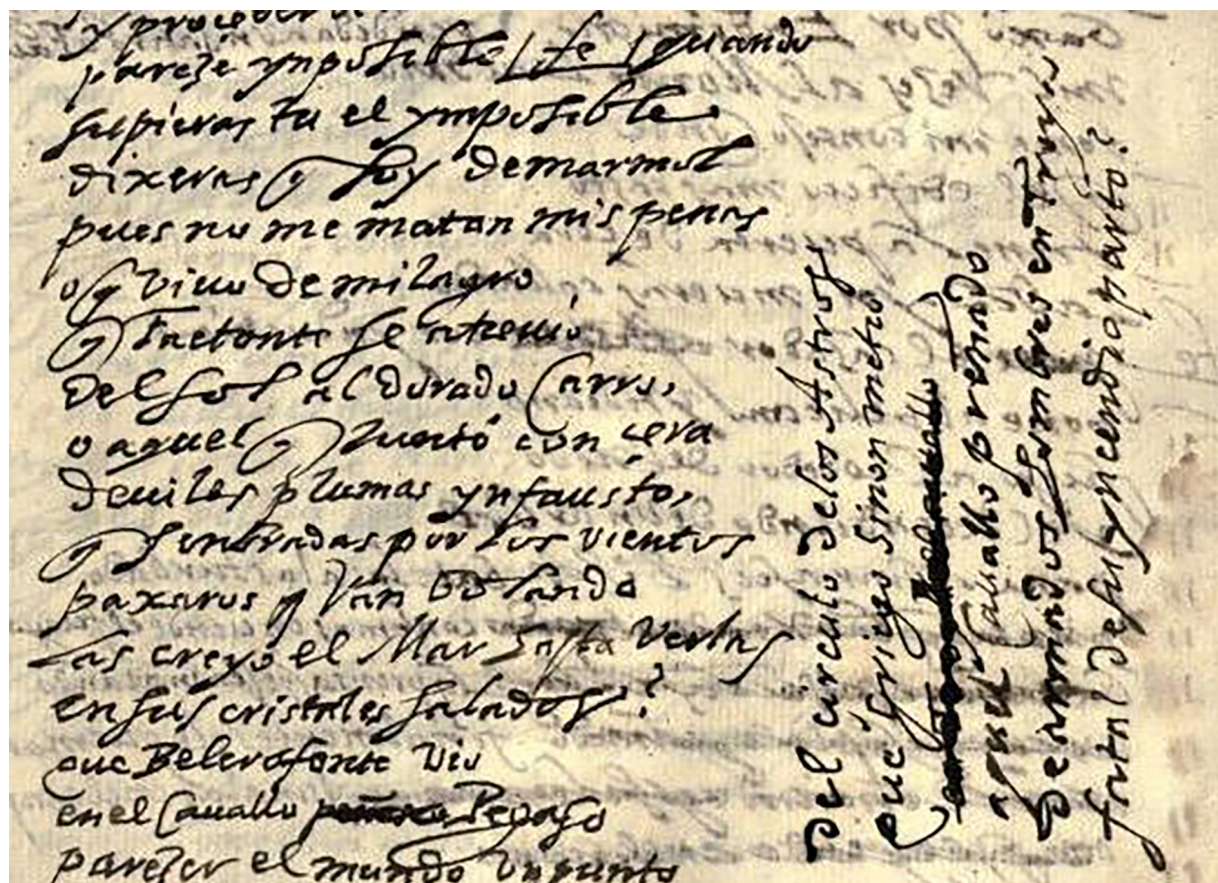 y proceder
pareze ynposible / fe / quando
supieras tu el ymposible
dixeras q soy de marmol
pues no me matan mis penas
o q viuo de milagro
q Faetonte se atreuio
del sol al dorado Carro,
o aquel q Junto con çera
deuiles plumas ynfausto,
q senbradas por los vientos
paxaros q van bolando
las creyo el Mar hasta verlas
en sus cristales salados?
que Belerofonte vio
en el Cauallo Pegaso
parezer el mundo un punto
del circulo de los Astros
que Griego Sinon metio
aquel Cauallo preñado
de armados hombres en Troya
fatal de su yncendio parto?